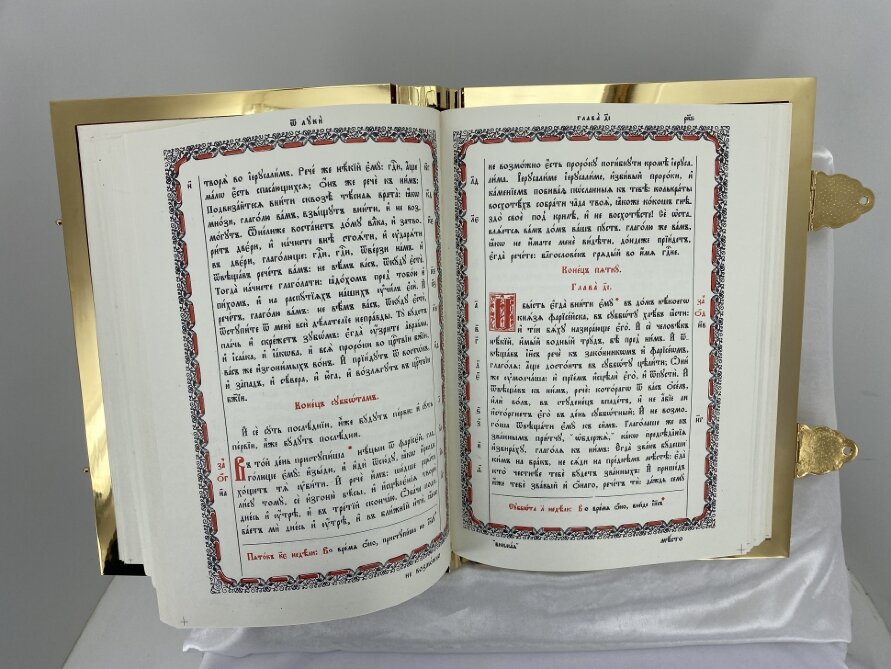 ѿ лꙋкѝ
творѧ̀ во і҆ерⷭ҇али́мъ. Рече́ же нѣ́кїй є҆мꙋ̀: гдⷭ҇и, а҆́ще
ма́лѡ є҆́сть спаса́ющихсѧ; Ѻ҆́нъ же речѐ къ ни̑мъ:
Подвиза́йтесѧ вни́ти сквозѣ̀ тѣ̑снаѧ врата̀: ꙗ҆́кѡ
мно́зи, гл҃го́лю ва́мъ, взы́щꙋтъ вни́ти, и҆ не воз‐
мо́гꙋтъ. Ѿне́лиже воста́нетъ до́мꙋ влⷣка, и҆ затво‐
ри́тъ двє́ри, и҆ на́чнете внѣ̀ стоѧ́ти, и҆ ᲂу҆дарѧ́ти
въ двє́ри, глаго́люще: гдⷭ҇и, гдⷭ҇и, ѿве́рзи на́мъ. И҆
ѿвѣща́въ рече́тъ ва́мъ: не вѣ́мъ ва́съ, ѿкꙋ́дꙋ є҆стѐ.
Тогда̀ на́чнете глаго́лати: ꙗ҆до́хомъ пред̾ тобо́ю и҆
пи́хомъ, и҆ на распꙋ́тїѧхъ на́шихъ ᲂу҆чи́лъ є҆сѝ. И҆
рече́тъ, глаго́лю ва́мъ: не вѣ́мъ ва́съ, ѿкꙋ́дꙋ є҆стѐ:
ѿстꙋпи́те ѿ менѐ всѝ дѣ́лателїе непра́вды. Тꙋ̀ бꙋ́детъ
пла́чь и҆ скре́жетъ зꙋбѡ́мъ: є҆гда̀ ᲂу҆́зрите а҆враа́ма
и҆ і҆саа́ка, и҆ і҆а́кѡва, и҆ всѧ̑ проро́ки во црⷭ҇твїи бж҃їи,
ва́съ же и҆згони́мыхъ во́нъ. И҆ прїи́дꙋтъ ѿ востѡ́къ
и҆ за̑падъ, и҆ сѣ́вера, и҆ ю҆́га, и҆ возлѧ́гꙋтъ въ црⷭ҇твїи
бж҃їи.
Коне́цъ сꙋббѡ́тамъ.
И҆ сѐ сꙋ́ть послѣ́днїи, и҆̀же бꙋ́дꙋтъ пе́рви: и҆ сꙋ́ть
пе́рвїи, и҆̀же бꙋ́дꙋтъ послѣ́дни.
Въ то́й де́нь пристꙋпи́ша нѣ́цыи ѿ фарїсє́й, гла‐
го́люще є҆мꙋ̀: и҆зы́ди, и҆ и҆дѝ ѿсю́дꙋ, ꙗ҆́кѡ и҆́рѡдъ
хо́щетъ тѧ̀ ᲂу҆би́ти. И҆ речѐ и҆̀мъ: ше́дше рцы́те
ли́сꙋ томꙋ̀, сѐ и҆згоню̀ бѣ́сы, и҆ и҆сцѣлє́нїѧ творю̀
дне́сь и҆ ᲂу҆́трѣ, и҆ въ тре́тїй сконча́ю. Ѻ҆ба́че подо‐
ба́етъ мѝ дне́сь и҆ ᲂу҆́трѣ, и҆ въ бли́жнїй и҆тѝ: ꙗ҆́кѡ
Пѧто́къ к҃є недѣ́ли: Во вре́мѧ ѻ҆́но, пристꙋпи́ша ко і҆и҃сꙋ
не возмо́жно
глава̀ д҃і
не возмо́жно є҆́сть проро́кꙋ поги́бнꙋти кромѣ̀ і҆ерꙋса‐
ли́ма. І҆ерⷭ҇али́ме і҆ерⷭ҇али́ме, и҆зби́вый проро́ки, и҆
ка́менїемъ побива́ѧ по́сланныѧ къ тебѣ̀: колькра́ты
восхотѣ́хъ собра́ти ча̑да твоѧ̑, ꙗ҆́коже ко́кошъ гнѣ‐
здо̀ своѐ под̾ крилѣ̀, и҆ не восхотѣ́сте; Сѐ ѡ҆ста‐
влѧ́етсѧ ва́мъ до́мъ ва́шъ пꙋ́стъ. глаго́лю же ва́мъ,
ꙗ҆́кѡ не и҆́мате менѐ ви́дѣти, до́ндеже прїи́детъ,
є҆гда̀ рече́те: благослове́нъ грѧды́й во и҆́мѧ гдⷭ҇не.
Коне́цъ пѧткꙋ̀.
Глава̀ д҃і.
И҆ бы́сть є҆гда̀ вни́ти є҆мꙋ̀ въ до́мъ нѣ́коегѡ
кнѧ́зѧ фарїсе́йска, въ сꙋббѡ́тꙋ хлѣ́ба ꙗ҆́сти:
и҆ ті́и бѧ́хꙋ назира́юще є҆го̀. И҆ сѐ человѣ́къ
нѣ́кїй, и҆мы́й во́дный трꙋ́дъ, бѣ̀ пред̾ ни́мъ. И҆ ѿ‐
вѣща́въ і҆и҃съ речѐ къ зако́нникѡмъ и҆ фарїсе́ѡмъ,
глаго́лѧ: а҆́ще досто́итъ въ сꙋббѡ́тꙋ цѣли́ти; Ѻ҆ни́
же ᲂу҆молча́ша: и҆ прїе́мъ и҆сцѣлѝ є҆го̀, и҆ ѿпꙋстѝ. И҆
ѿвѣща́въ къ ни̑мъ, речѐ: кото́рагѡ ѿ ва́съ ѻ҆се́лъ,
и҆лѝ во́лъ, въ стꙋдене́цъ впаде́тъ, и҆ не а҆́бїе ли
и҆сто́ргнетъ є҆го̀ въ де́нь сꙋббѡ́тный; И҆ не возмо‐
го́ша ѿвѣща́ти є҆мꙋ̀ къ си̑мъ. Глаго́лаше же къ
зва̑ннымъ при́тчꙋ, ѡ҆держѧ̀, ка́кѡ предсѣда̑нїѧ
и҆збира́хꙋ, глаго́лѧ къ ни̑мъ: Є҆гда̀ зва́нъ бꙋ́деши
ки́мъ на бра́къ, не сѧ́ди на пре́днемъ мѣ́стѣ: є҆да̀
кто̀ честнѣ́е тебє̀ бꙋ́детъ зва́нныхъ: И҆ прише́дъ
и҆́же тебѐ зва́вый и҆ ѻ҆́наго, рече́тъ тѝ: да́ждь семꙋ̀
Сꙋббѡ́та л҃ недѣ́ли: Во вре́мѧ ѻ҆́но, вни́де і҆и҃съ
мѣ́сто